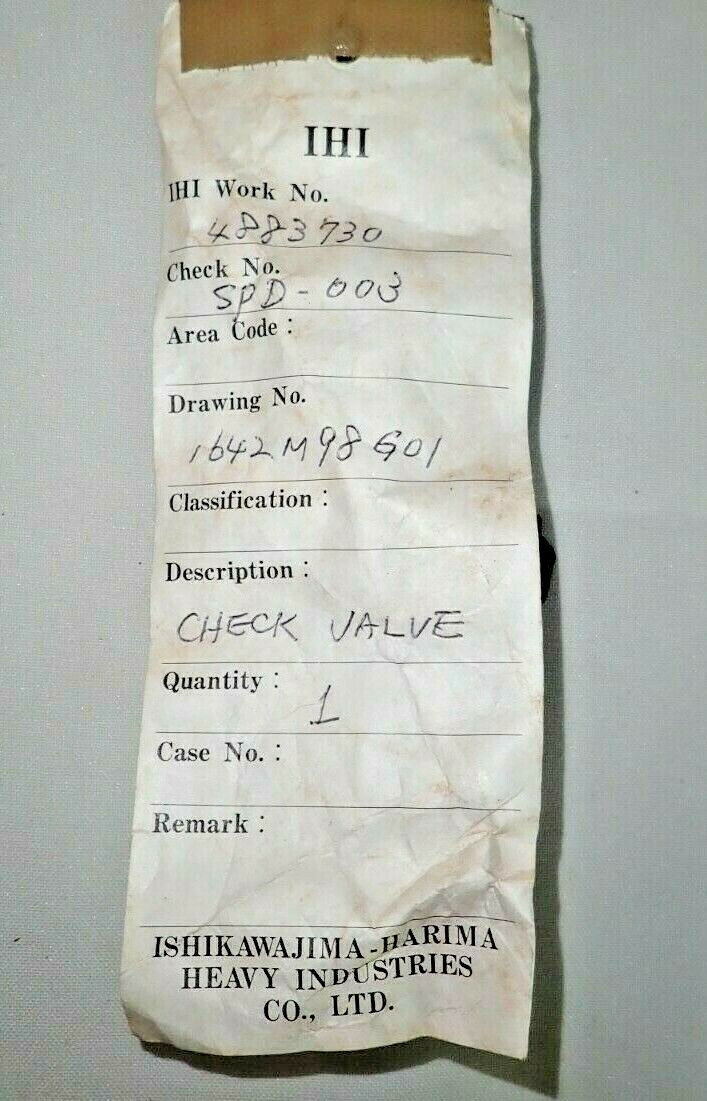 IHI
IHI Work No.
4883730
Check No.
SPD-003
Area Code :
Drawing No.
1642M98G01
Classification :
Description :
CHECK VALVE
Quantity :
1
Case No. :
Remark :
ISHIKAWAJIMA-HARIMA
HEAVY INDUSTRIES
CO., LTD.